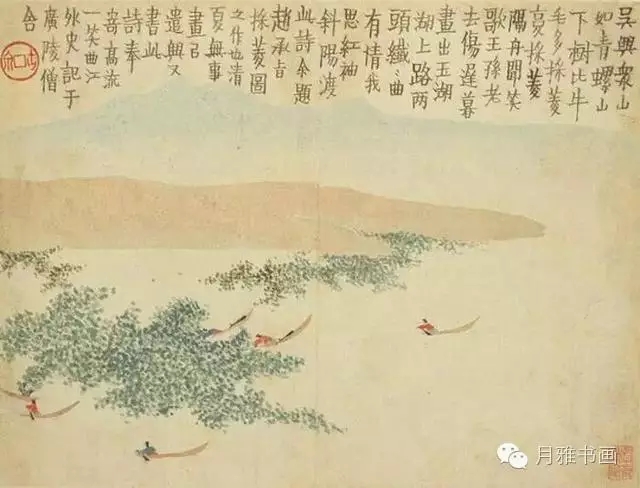 吳興衆山
如青螺山
下樹比牛
毛多採菱
採菱
隔舟聞笑
歌王孫老
去傷遲暮
畫出玉湖
湖上路兩
頭纖〻曲
有情我
思紅袖
斜陽渡
此詩余題
趙承旨
採菱圖
之作也清
夏無事
畫
遣興又
書此
詩奉
寄高流
一笑曲江
外史記于
廣陵僧
舍
月雅书画